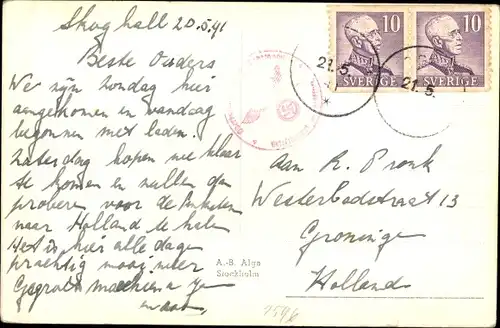 Skoghall 20.5.41
Beste Ouders
We zijn Zondag hier
aangekomen en vandaag
begonnen met laden.
Zaterdag hopen we klaar
te komen en zullen dan
proberen voor de Pinksteren
naar Holland te halen
Het is hier alle dagen
prachtig mooi weer
Gegroet
10 10
SVERIGE SVERIGE
21.5. 21.5.
Aan R. Pronk
Westerbadstraat 13
Groninge
Holland
A.-B. Alga
Stockholm